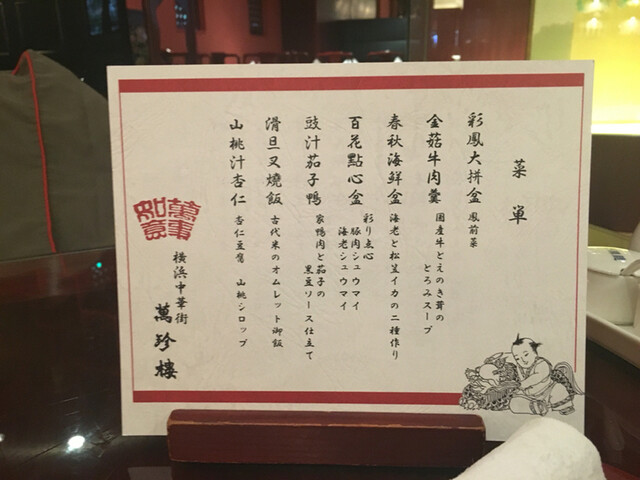 菜単
彩鳳大拼盆 鳳前菜
金菇牛肉羹 国産牛とえのき茸の
とろみスープ
春秋海鮮盆 海老と松笠イカの二種作り
百花點心盆 彩り点心
豚肉シュウマイ
海老シュウマイ
豉汁茄子鴨 家鴨肉と茄子の
黒豆ソース仕立て
滑旦叉燒飯 古代米のオムレット御飯
山桃汁杏仁 杏仁豆腐 山桃シロップ
萬事如意
横浜中華街
萬珍樓